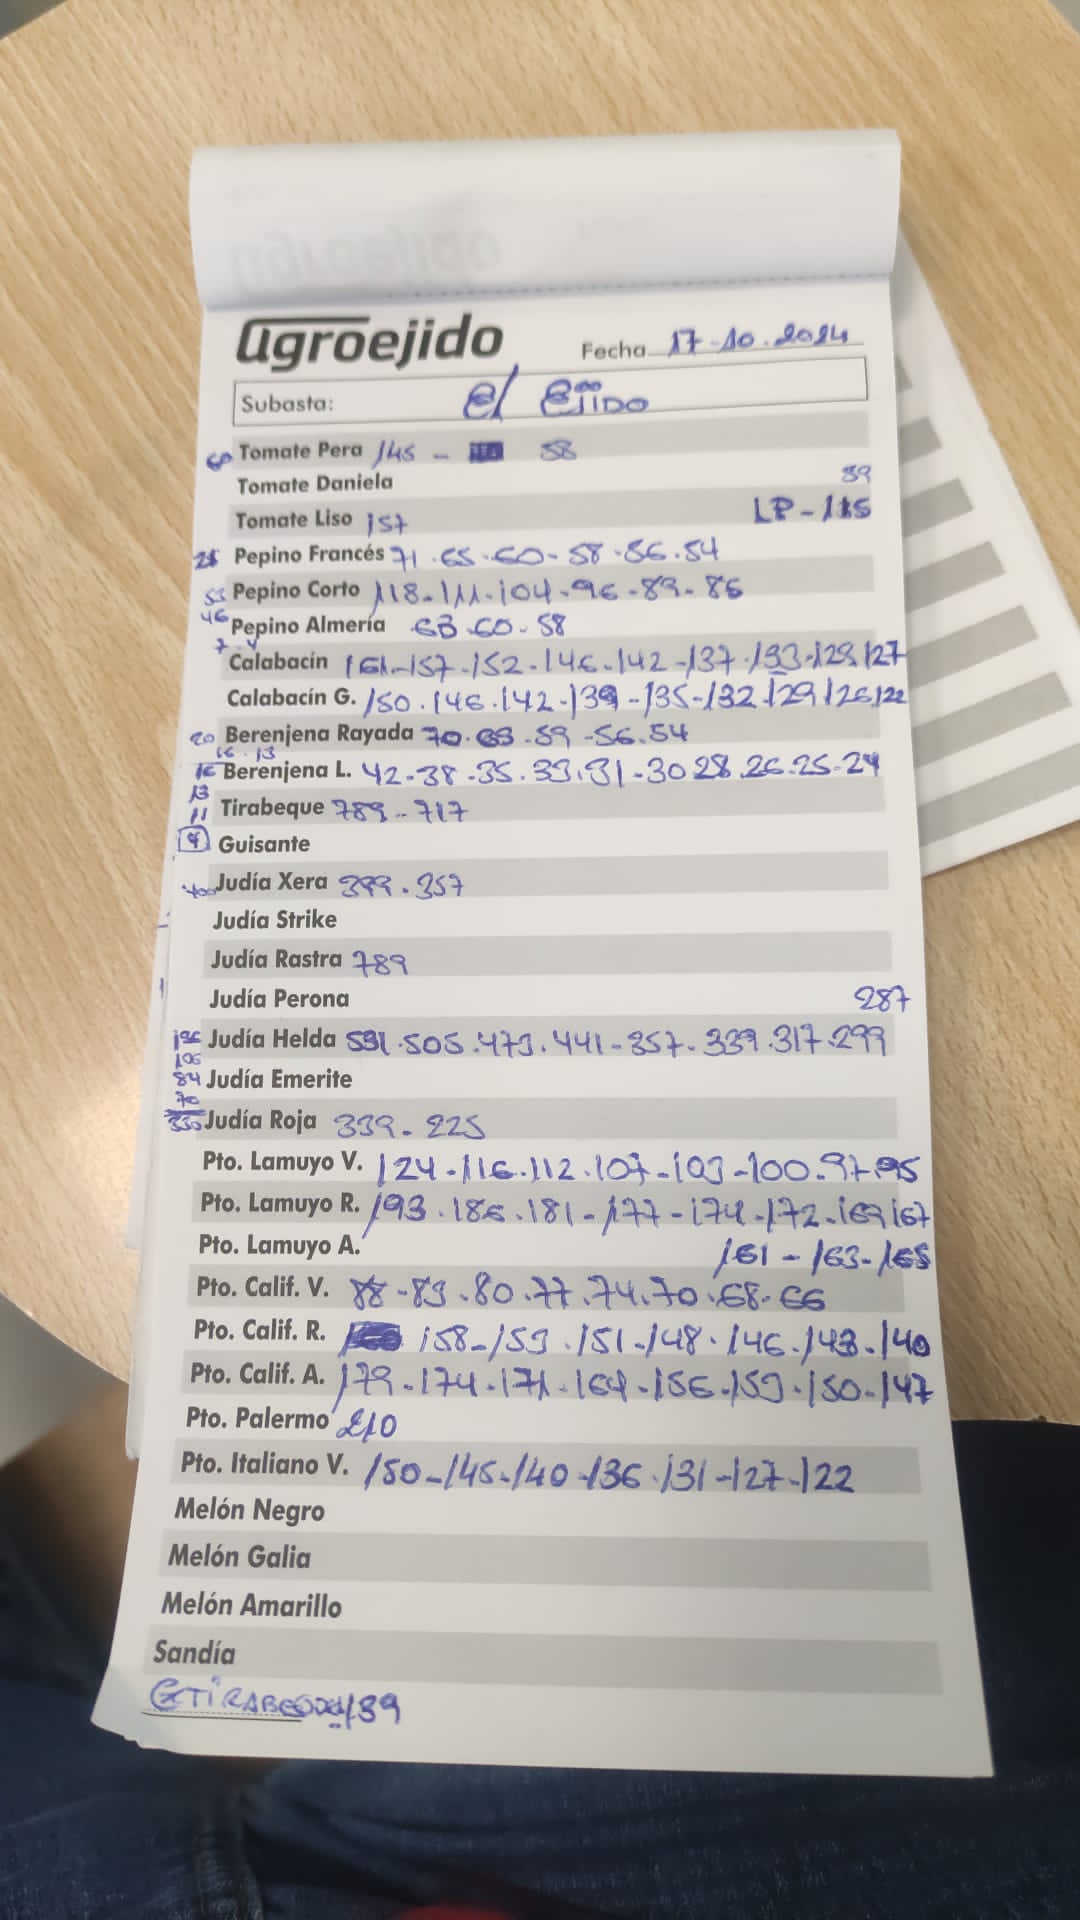 agroejido
Fecha 17-10.2024
Subasta: El Ejido
60 Tomate Pera 145 - 58
Tomate Daniela 39
Tomate Liso 157 LP-115
25 Pepino Francés 71.65.60-58.56.54
53 Pepino Corto 118-111-104-96-89-86
46 Pepino Almería 63.60-58
7.4
Calabacín 161-157-152-146-142-137-133-129.127
Calabacín G. 150.146.142-139-135-132.129.126.122
20 Berenjena Rayada 70.63.59-56.54
16.13
16 Berenjena L. 42-38-35.33.31-30.28.26.25-24
13
11 Tirabeque 789-717
9 Guisante
400 Judía Xera 399.357
Judía Strike
Judía Rastra 789
Judía Perona 287
196 Judía Helda 531.505.473.441-357-339.317.299
84 Judía Emerite
70
330 Judía Roja 339-225
Pto. Lamuyo V. 124-116.112.107-103-100.97.95
Pto. Lamuyo R. 193.186.181-177-174-172-169.167
Pto. Lamuyo A. 161-163-165
Pto. Calif. V. 88-83.80.77.74.70.68-66
Pto. Calif. R. 158-153.151-148.146.143-140
Pto. Calif. A. 179-174-171-164-156.153.150-147
Pto. Palermo 210
Pto. Italiano V. 150-145-140-136.131-127-122
Melón Negro
Melón Galia
Melón Amarillo
Sandía
139